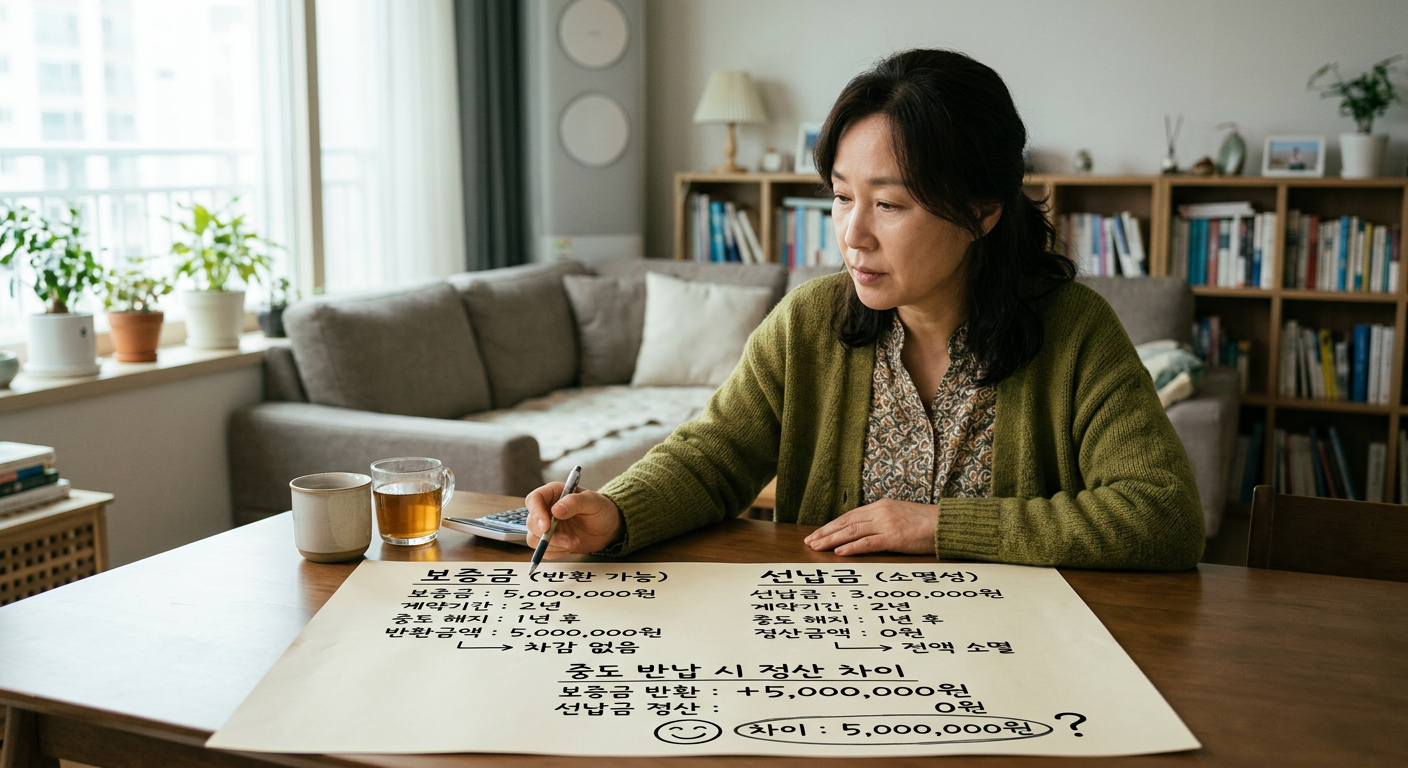 보증금 (반환 가능)
보증금 : 5,000,000원
계약기간 : 2년
중도 해지 : 1년 후
반환금액 : 5,000,000원
→ 차감 없음
선납금 (소멸성)
선납금 : 3,000,000원
계약기간 : 2년
중도 해지 : 1년 후
정산금액 : 0원
→ 전액 소멸
중도 반납 시 정산 차이
보증금 반환 : +5,000,000원
선납금 정산 : 0원
차이 : 5,000,000원 ?